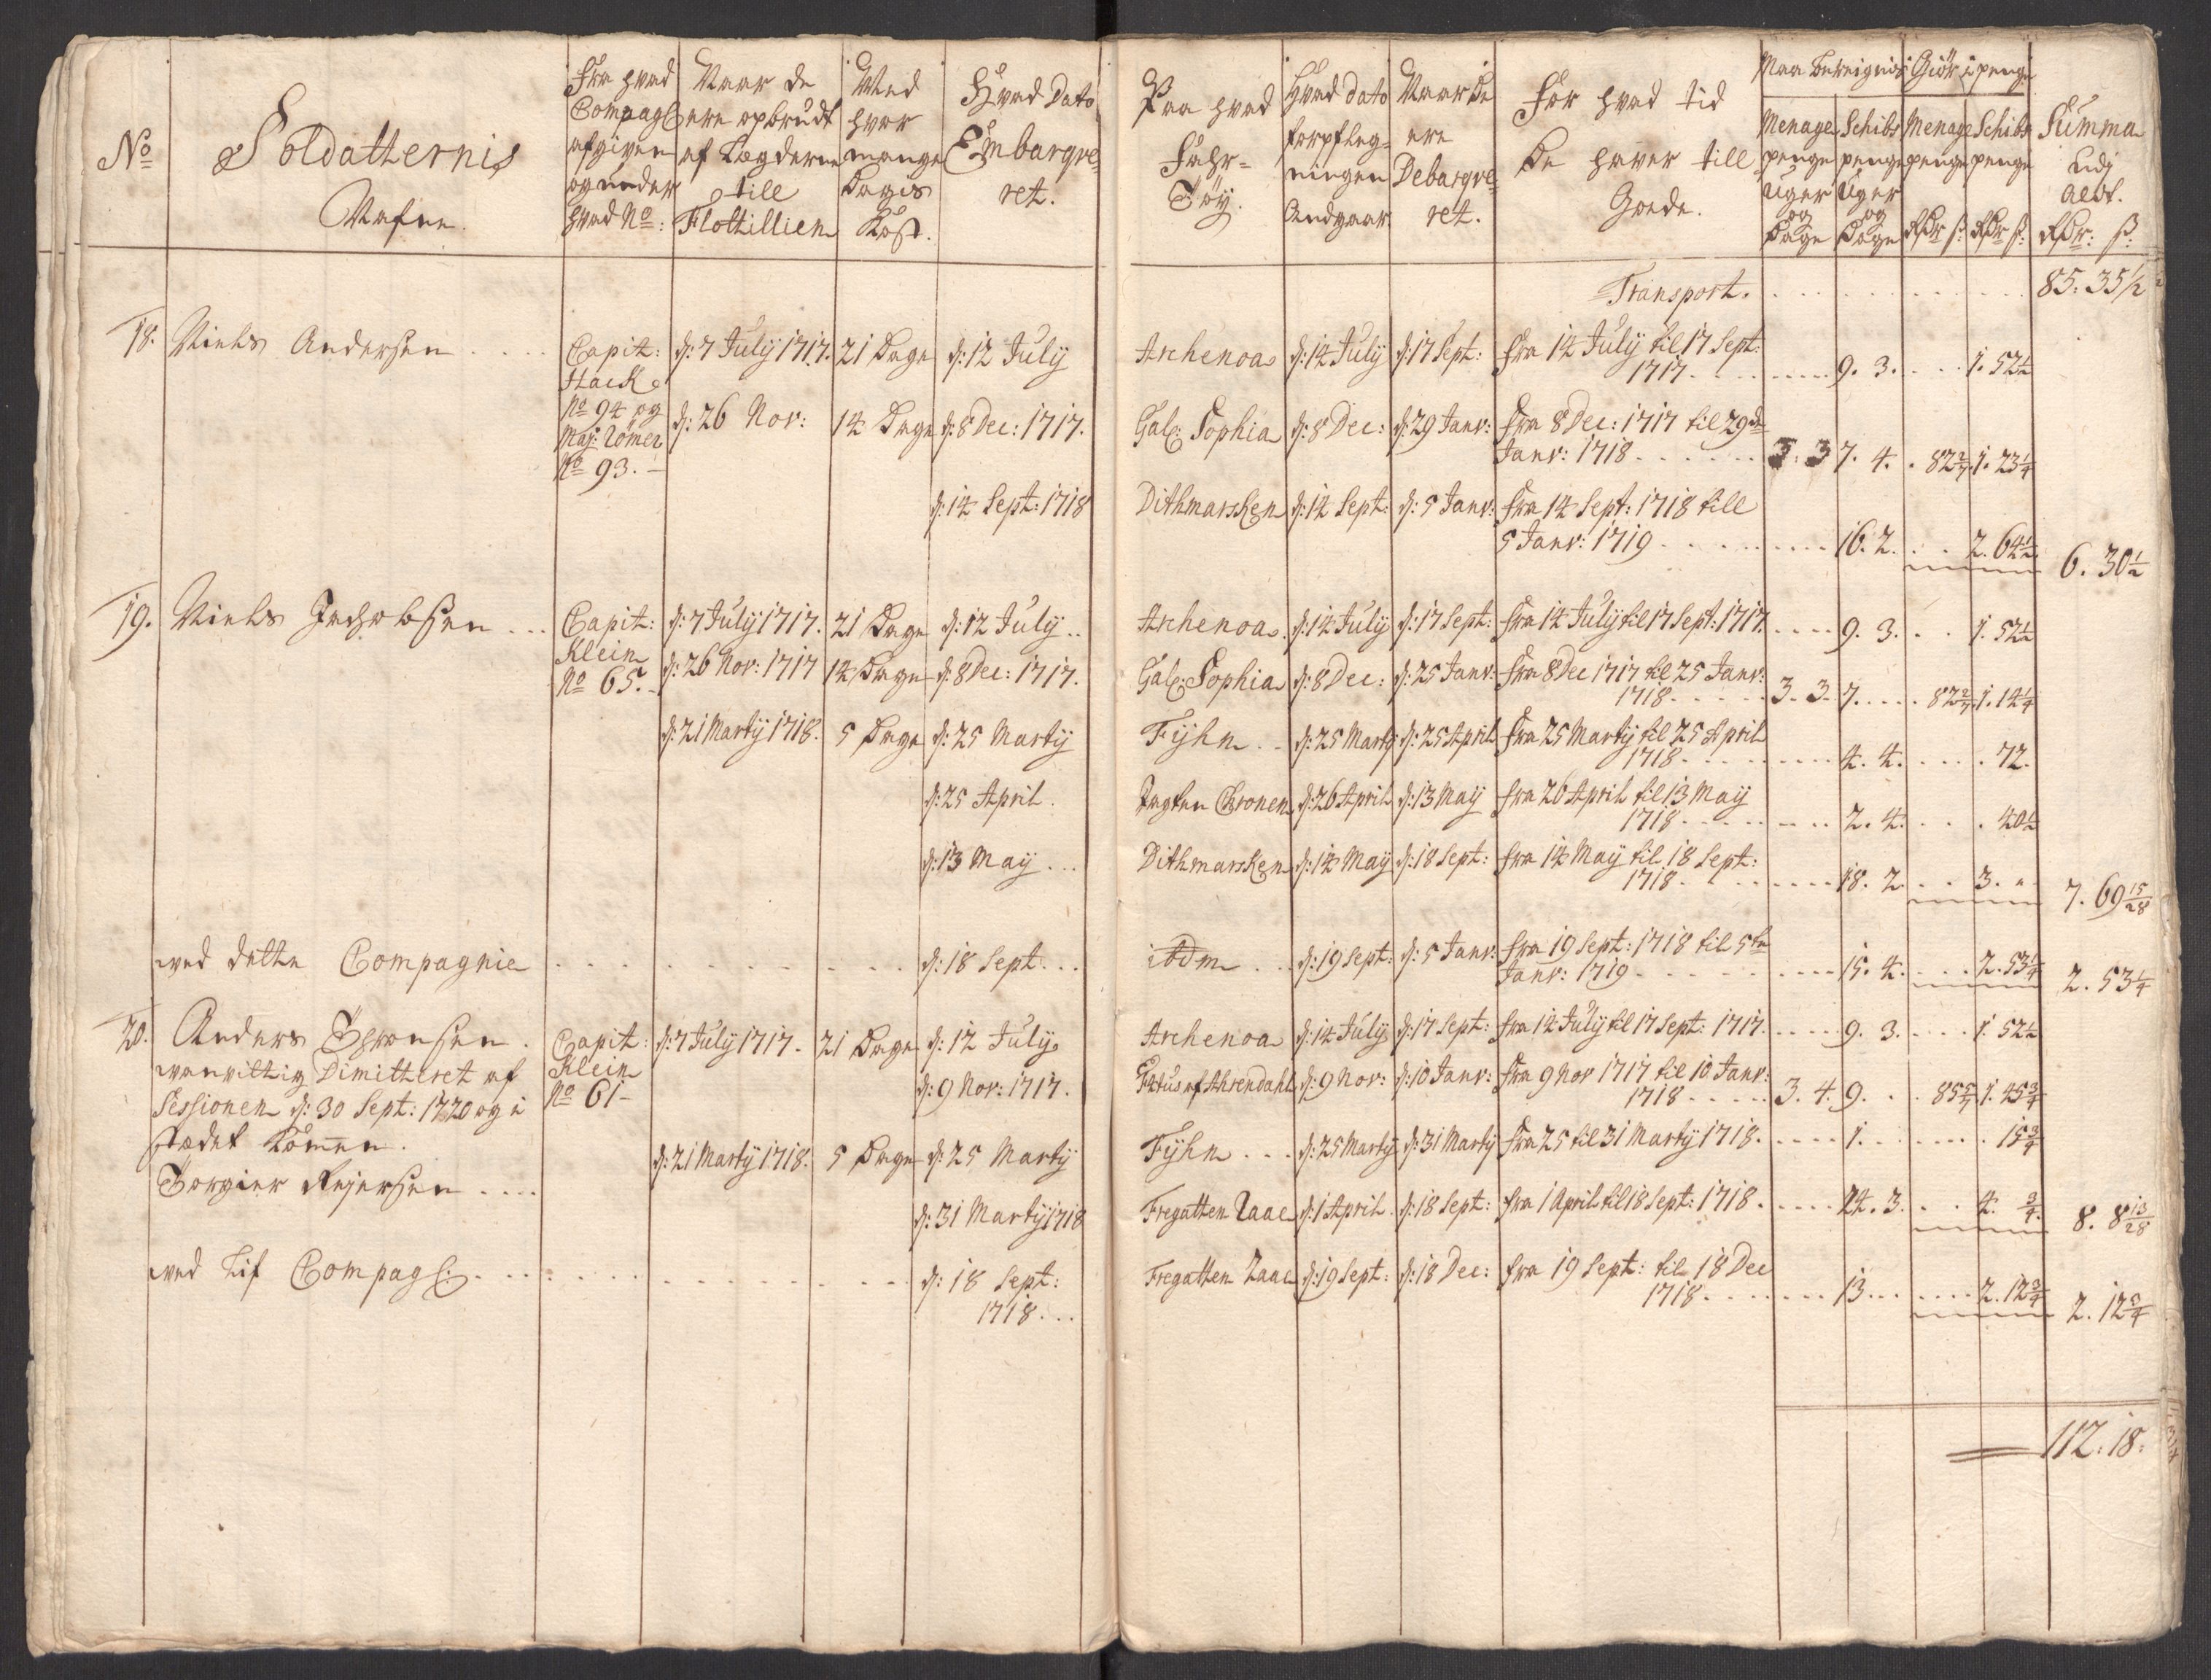 No
Soldatternis
Nafne.
Fra hvad
Compag:
afgiven
og under
hvad No:
Naar de
ere opbrudt
af Lægderne
till
Flottillien
Med
hvor
mange
Dagis
Kost.
Hvad Dato
Embarqve-
ret.
Paa hvad
Fahr-
Töy.
Hvad dato
forpfleg-
ningen
Andgaar.
Naar de
ere
Debarqve-
ret.
For hvad tid
de haver till
Goede.
Maa bereignis
Giör i penge
Menage
penge
Uger
og
Dage
Schibs
penge
Uger
og
Dage
Menage
penge
Rdr ß:
Schibs
penge
Rdr ß:
Summa
udj
aldt.
Rdr: ß:
Transport. 85. 35½
18. Niels Andersen Capit: d: 7 July 1717. 21 Dage d: 12 July Archenoa d: 14 July d: 17 Sept: fra 14 July til 17 Sept:
Hack 1717 9. 3. 1. 52½
No 94 og d: 26 Nov: 14 Dage d: 8 Dec: 1717. Gal: Sophia d: 8 Dec: d: 29 Janv: fra 8 Dec: 1717 til 29de
Maj: Römer Janv: 1718 3. 3 7. 4. 82 2/7 1. 23¼
No 93.
d: 14 Sept: 1718 Dithmarsken d: 14 Sept: d: 5 Janv: fra 14 Sept: 1718 till
5 Janv: 1719 16. 2. 2. 64½ 6. 30½
19. Niels Jachobsen Capit: d: 7 July 1717. 21 Dage d: 12 July Archenoa d: 14 July d: 17 Sept: fra 14 July til 17 Sept: 1717. 9. 3. 1. 52½
Klein d: 26 Nov: 1717 14 Dage d: 8 Dec: 1717. Gal: Sophia d: 8 Dec: d: 25 Janv: fra 8 Dec 1717 til 25 Janv:
No 65. 1718 3. 3. 7. 82 2/7 1. 14¼
d: 21 Marty 1718. 5 Dage d: 25 Marty Fyhn d: 25 Marty d: 25 April fra 25 Marty til 25 April
1718 4. 4. 72.
d: 25 April. Jagten Cronen d: 26 April d: 13 May fra 26 April til 13 May
1718 2. 4. 40½
d: 13 May Dithmarsken d: 14 May d: 18 Sept: fra 14 May til 18 Sept:
1718 18. 2. 3. „ 7. 69 15/28
ved dette Compagnie d: 18 Sept. itdm d: 19 Sept: d: 5 Janv: fra 19 Sept: 1718 til 5te
Janv: 1719 15. 4. 2. 53¼ 2. 53¼
20. Anders Thronsen. Capit: d: 7 July 1717. 21 Dage d: 12 July Archenoa d: 14 July d: 17 Sept: fra 14 July til 17 Sept: 1717. 9. 3. 1. 52½
vanvittig Dimitteret af Klein d: 9 Nov: 1717. af Ahrendahl d: 9 Nov: d: 10 Janv: fra 9 Nov 1717 til 10 Janv:
Sessionen d: 30 Sept: 1720 og i No 61 1718 3. 4. 9. 85 5/7 1. 45¾
stædet kommen.
d: 21 Marty 1718. 5 Dage d: 25 Marty Fyhn d: 25 Marty d: 31 Marty fra 25 til 31 Marty 1718. 1. 15¾
Torgier Rejersen
d: 31 Marty 1718 Fregatten Raae d: 1 April d: 18 Sept: fra 1 April til 18 Sept: 1718. 24. 3. 4. ¾. 8. 8 13/28
ved Lif Compag: d: 18 Sept: Fregatten Raae d: 19 Sept: d: 18 Dec: fra 19 Sept: til 18 Dec
1718 1718 13. 2. 12¾ 2. 12¾
112. 18.